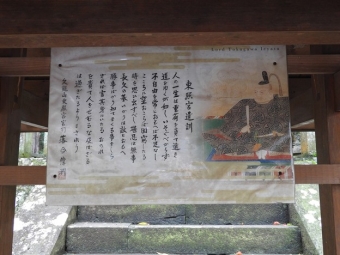 東照宮遺訓
人の一生は重荷を負て遠き
道を行くが如しいそぐべからず
不自由を常とおもへば不足なし
こころに望おこらば困窮したる
時を思ひ出すべし堪忍は無事
長久の基いかりは敵とおもへ
勝事ばかり知てまくる事をし
らざれば害其身にいたるおのれ
を責て人をせむるな及ばざる
は過たるよりまされり
久能山東照宮宮司 落合偉洲